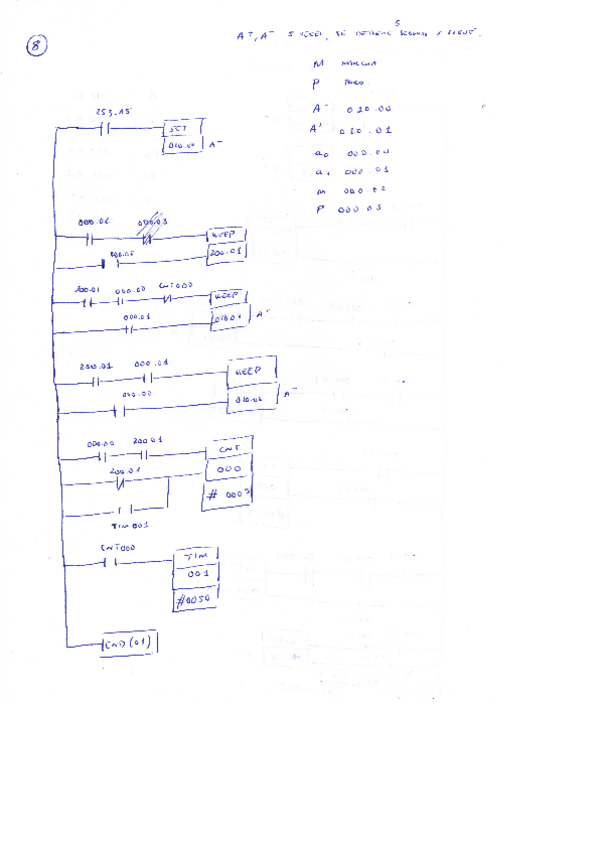 8
5
A+, A- 5 VECES, SE DETIENE SEGUNDOS Y SIGUE.
M MARCHA
P PARO
A- 010.00
A+ 010.01
a0 000.00
a1 000.01
M 000.02
P 000.03
253.15
SET
010.00 A-
000.02 000.03
KEEP
200.01
200.01 000.00 CNT000
KEEP
000.01
A+
200.01 000.01
KEEP
000.00
A-
000.00 200.01
CNT
000
200.01
TIM001
CNT000
TIM
001
#0050
END (01)